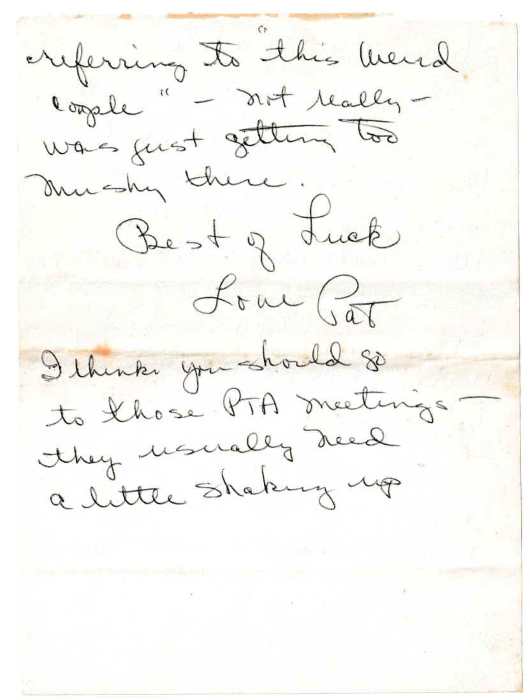 referring to "this weird
couple" - not really -
was just getting too
mushy there.
Best of Luck
Love Pat
I think you should go
to those PTA meetings -
they usually need
a little shaking up